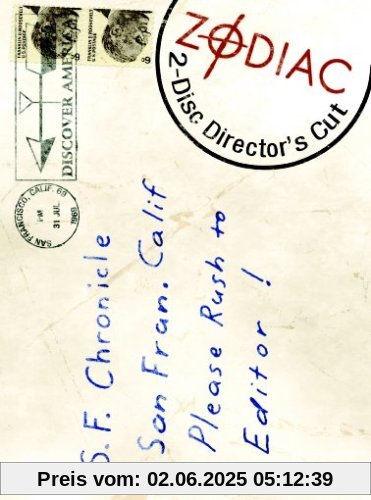 ZODIAC
2-Disc Director's Cut
FRANKLIN D. ROOSEVELT
U.S. POSTAGE
6¢
FRANKLIN D. ROOSEVELT
U.S. POSTAGE
6¢
DISCOVER AMERICA
SAN FRANCISCO, CALIF. 69
PM
31 JUL
1969
S.F. Chronicle
San Fran. Calif
Please Rush to
Editor!
Preis vom: 02.06.2025 05:12:39